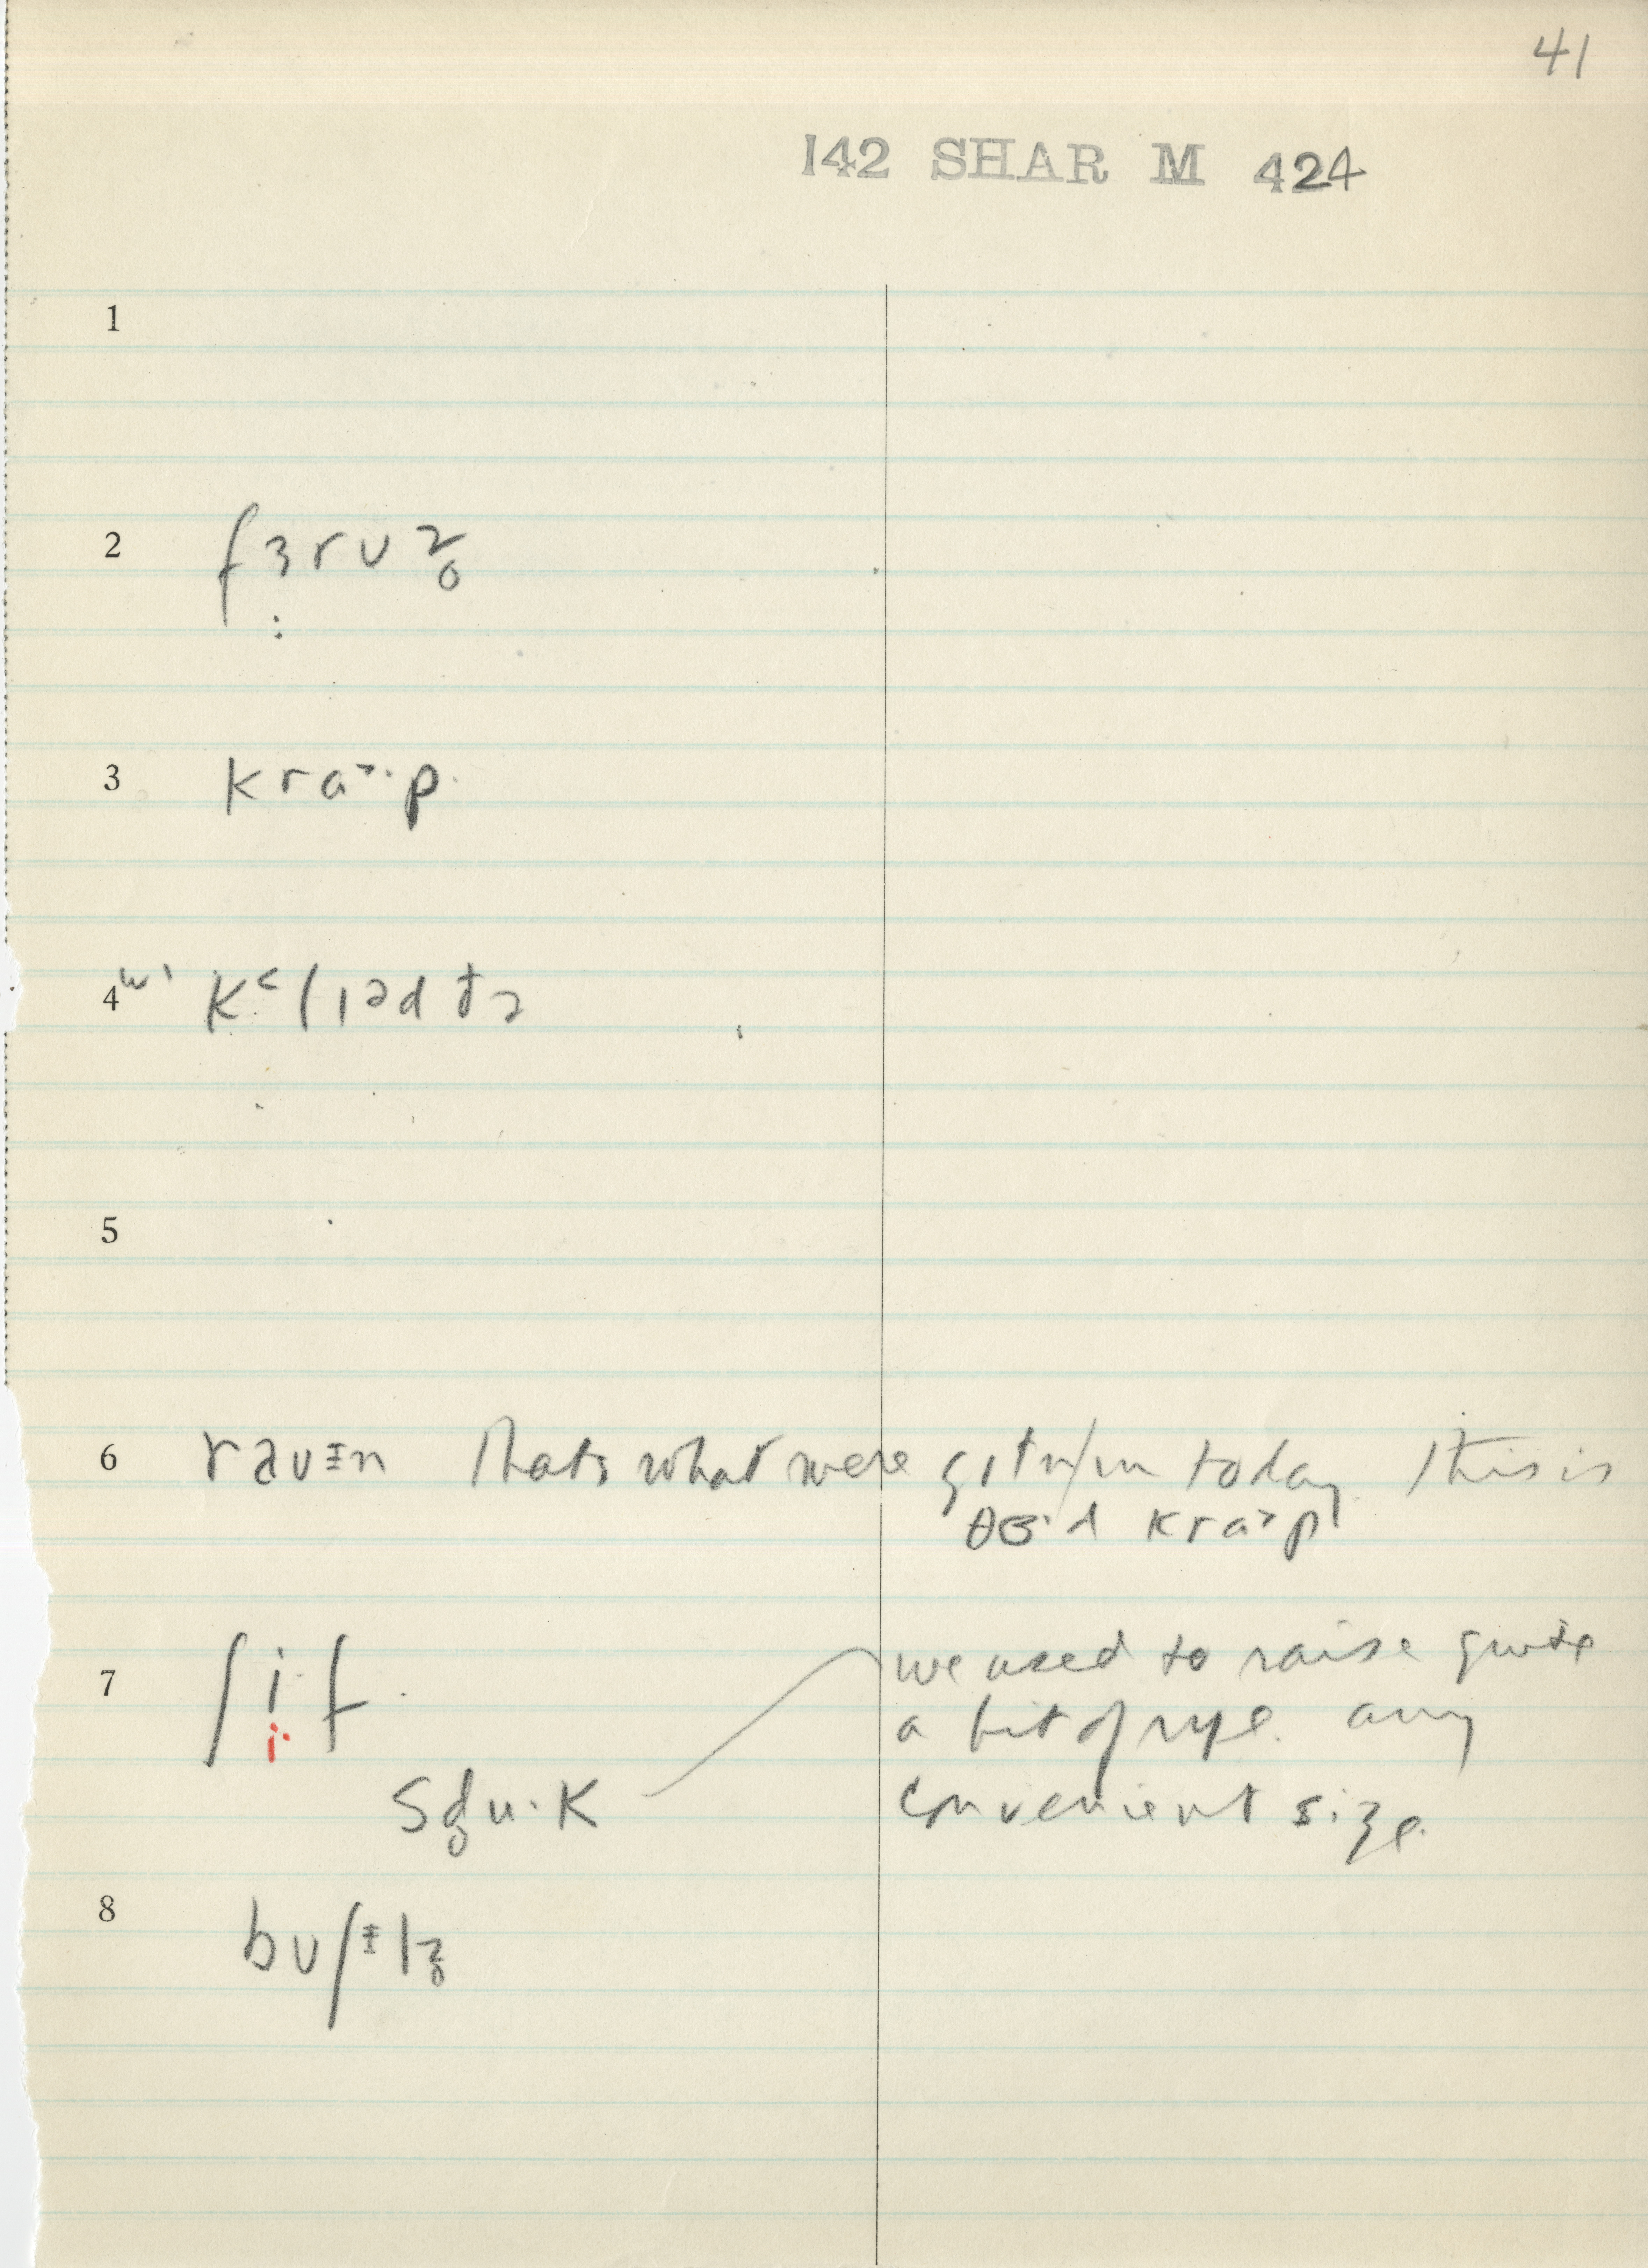 41
142 SHAR M 424
1
2 fɜrʋz̥
3 kra˃·p
4 wɪ k˂lɪədtə
5
6 raʋɨn thats what were gɪtn/ɪn today this is
θɜ·d kra˃p
7 ʃi·f we used to raise quite
i·
a bit of rye. any
sd̥u·k convenient size.
8 bʋʃɨlz̥